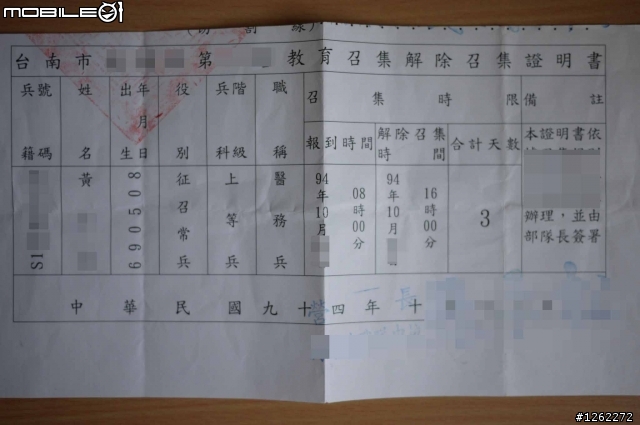 MOBILE01
(切 割 線)
台南市 第 教育召集解除召集證明書
兵號
籍碼
姓名
出生
年月日
役別
兵階
科級
職稱
召集時限
備註
報到時間
解除召集時間
合計天數
本證明書依
S1
黃
690508
征召常兵
上等兵
醫務兵
94年10月
08時00分
94年10月
16時00分
3
辦理,並由
部隊長簽署
中華民國九十四年十
營 長
#1262272